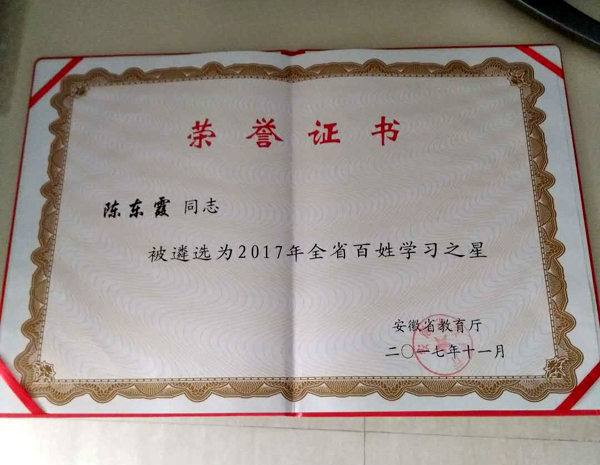 荣誉证书
陈东霞 同志
被遴选为2017年全省百姓学习之星
安徽省教育厅
二〇一七年十一月